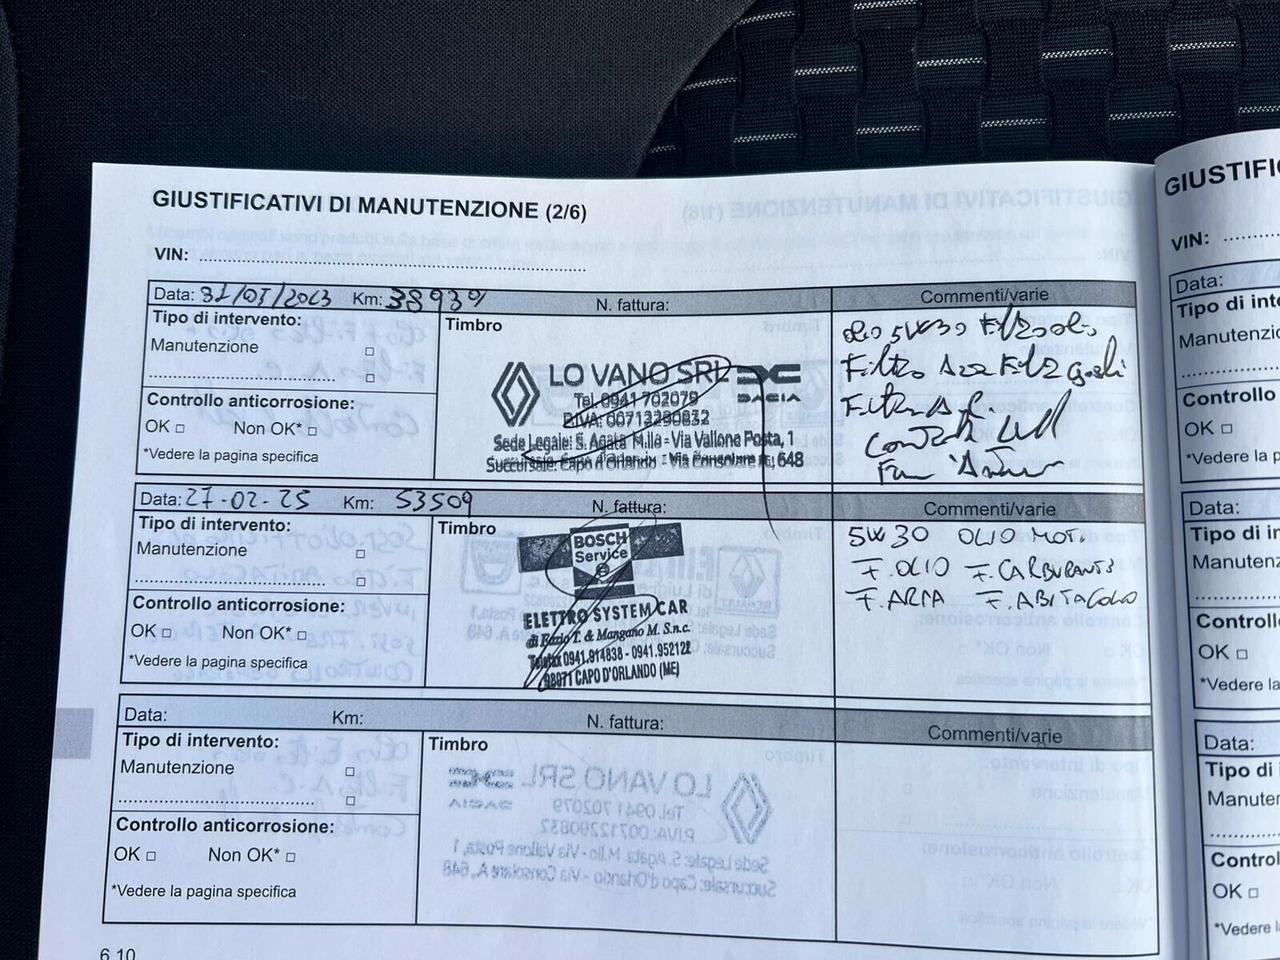 GIUSTIFICATIVI DI MANUTENZIONE (2/6)
VIN:
Data: 31/05/2023 Km: 38939 N. fattura: Commenti/varie
Tipo di intervento:
Manutenzione
Controllo anticorrosione:
OK Non OK*
*Vedere la pagina specifica
Timbro
LO VANO SRL
DACIA
Tel. 0941 702079
P.IVA: 00713290832
Sede Legale: S. Agata M.lla - Via Vallone Posta, 1
Succursale: Capo d'Orlando - Via Consolare A, 648
olio 5W30 Filtro olio
Filtro Aria Filtro gasolio
Filtro
Data: 27-02-25 Km: 53509 N. fattura: Commenti/varie
Tipo di intervento:
Manutenzione
Controllo anticorrosione:
OK Non OK*
*Vedere la pagina specifica
Timbro
BOSCH
Service
ELETTRO SYSTEM CAR
di Fazio T. & Mangano M. S.n.c.
Telefax 0941.914838 - 0941.952122
98071 CAPO D'ORLANDO (ME)
5W30 OLIO MOT.
F. OLIO F. CARBURANTE
F. ARIA F. ABITACOLO
Data: Km: N. fattura: Commenti/varie
Tipo di intervento:
Manutenzione
Controllo anticorrosione:
OK Non OK*
*Vedere la pagina specifica
Timbro
6.10
GIUSTIFI
VIN:
Data:
Tipo di int
Manutenzi
Controllo
OK
*Vedere la p
Data:
Tipo di inte
Manutenz
Controll
OK
*Vedere la
Data:
Tipo di i
Manuter
Control
OK
*Vedere l